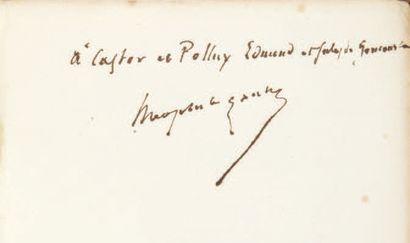 à Castor et Pollux Edmond et Jules de Goncourt
Théophile Gautier